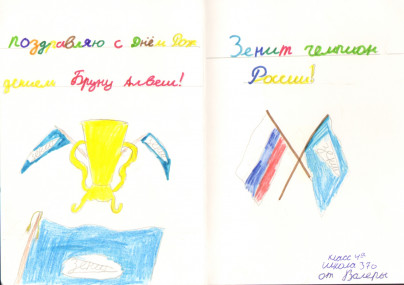 Поздравляю с Днём Рож
дением Бруну Алвеш!
Зенит чемпион
России!
класс 4а
школа 370
от Валеры